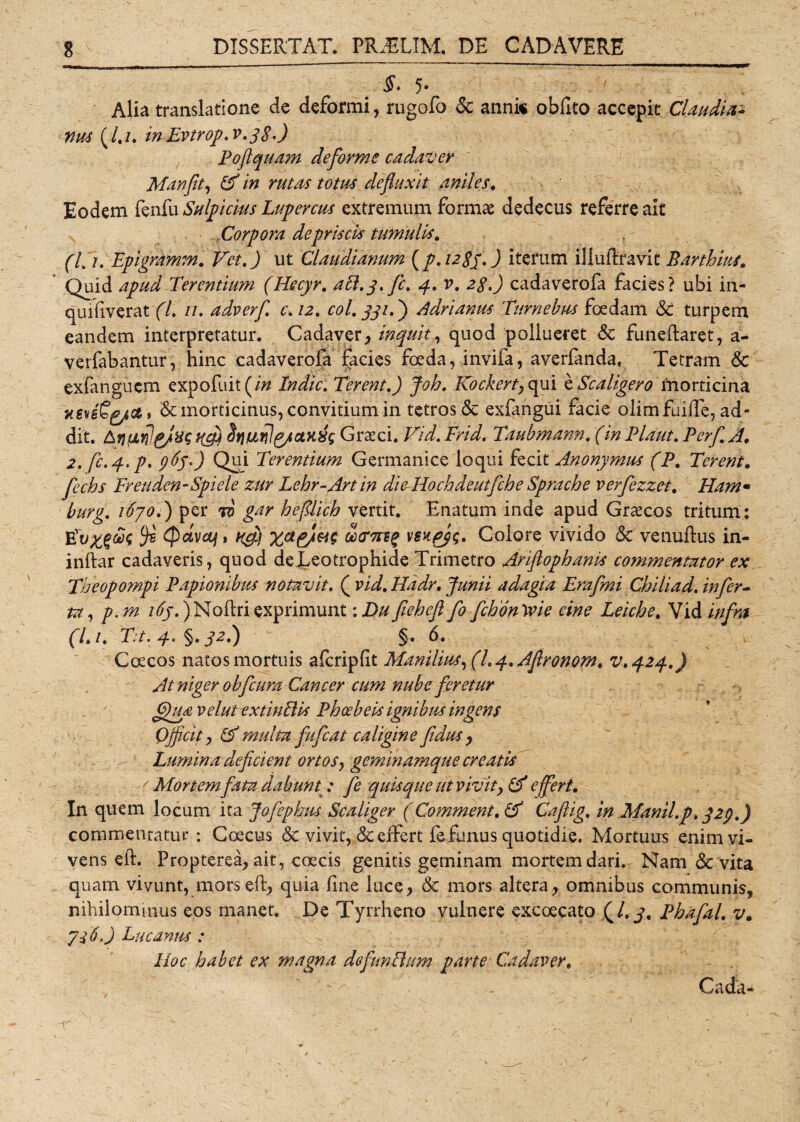 8 DISSERTAT. PRÆLIM. DE CADAVERE
§. 5.
Alia translatione de deformi, rugoſo & annis obſito accepit Claudia-
nus (l.1. in Evtrop. v.38.)
Poſtquam deforme cadaver
Manſit, & in rutas totus defluxit aniles.
Eodem ſenſu Sulpicius Lupercus extremum formæ dedecus referre ait
Corpora depriscis tumulis.
(l. 1. Epigramm. Vet.) ut Claudianum (p. 1285.) iterum illuſtravit Barthius.
Quid apud Terentium (Hecyr. act. 3. ſc. 4. v. 28.) cadaveroſa facies? ubi in-
quiſiverat (l. 11. adverſ. c. 12. col. 331.) Adrianus Turnebus fœdam & turpem
eandem interpretatur. Cadaver, inquit, quod pollueret & funeſtaret, a-
verſabantur, hinc cadaveroſa facies fœda, inviſa, averſanda. Tetram &
exſanguem expoſuit (in Indic. Terent.) Joh. Kockert, qui è Scaligero morticina
κενέβρια, & morticinus, convitium in tetros & exſangui facie olim fuiſſe, ad-
dit. Δημητρίȣς καὶ δημητριακȣ̀ς Græci. Vid. Frid. Taubmann. (in Plaut. Perſ. A.
2. ſc. 4. p. 965.) Qui Terentium Germanice loqui fecit Anonymus (P. Terent.
ſechs Freuden-Spiele zur Lehr-Art in die Hochdeutſche Sprache verſezzet. Ham-
burg. 1670.) per τὸ gar heßlich vertit. Enatum inde apud Græcos tritum:
Εὐχρῶς δὲ φάναι, καὶ χαρίεις ὥσπερ νεκρός. Colore vivido & venuſtus in-
inſtar cadaveris, quod de Leotrophide Trimetro Ariſtophanis commentator ex
Theopompi Papionibus notavit. (vid. Hadr. Junii adagia Eraſmi Chiliad. inſer-
ta, p. m 165.) Noſtri exprimunt: Du ſieheſt ſo ſchön wie eine Leiche. Vid infra
(l. 1. Tit. 4. §. 32.) §. 6.
Cœcos natos mortuis aſcripſit Manilius, (l. 4. Aſtronom. v. 424.)
At niger obſcura Cancer cum nube feretur
Quæ velut extinctis Phœbeis ignibus ingens
Officit, & multa fuſcat caligine ſidus,
Lumina deficient ortos, geminamque creatis
Mortem fata dabunt: ſe quisque ut vivit, & effert.
In quem locum ita Joſephus Scaliger (Comment. & Caſtig. in Manil. p. 329.)
commentatur: Cœcus & vivit, & effert ſe funus quotidie. Mortuus enim vi-
vens eſt. Propterea, ait, cœcis genitis geminam mortem dari. Nam & vita
quam vivunt, mors eſt, quia ſine luce, & mors altera, omnibus communis,
nihilominus eos manet. De Tyrrheno vulnere excœcato (l. 3. Phaſal. v.
736.) Lucanus:
Hoc habet ex magna defunctum parte Cadaver.
Cada-